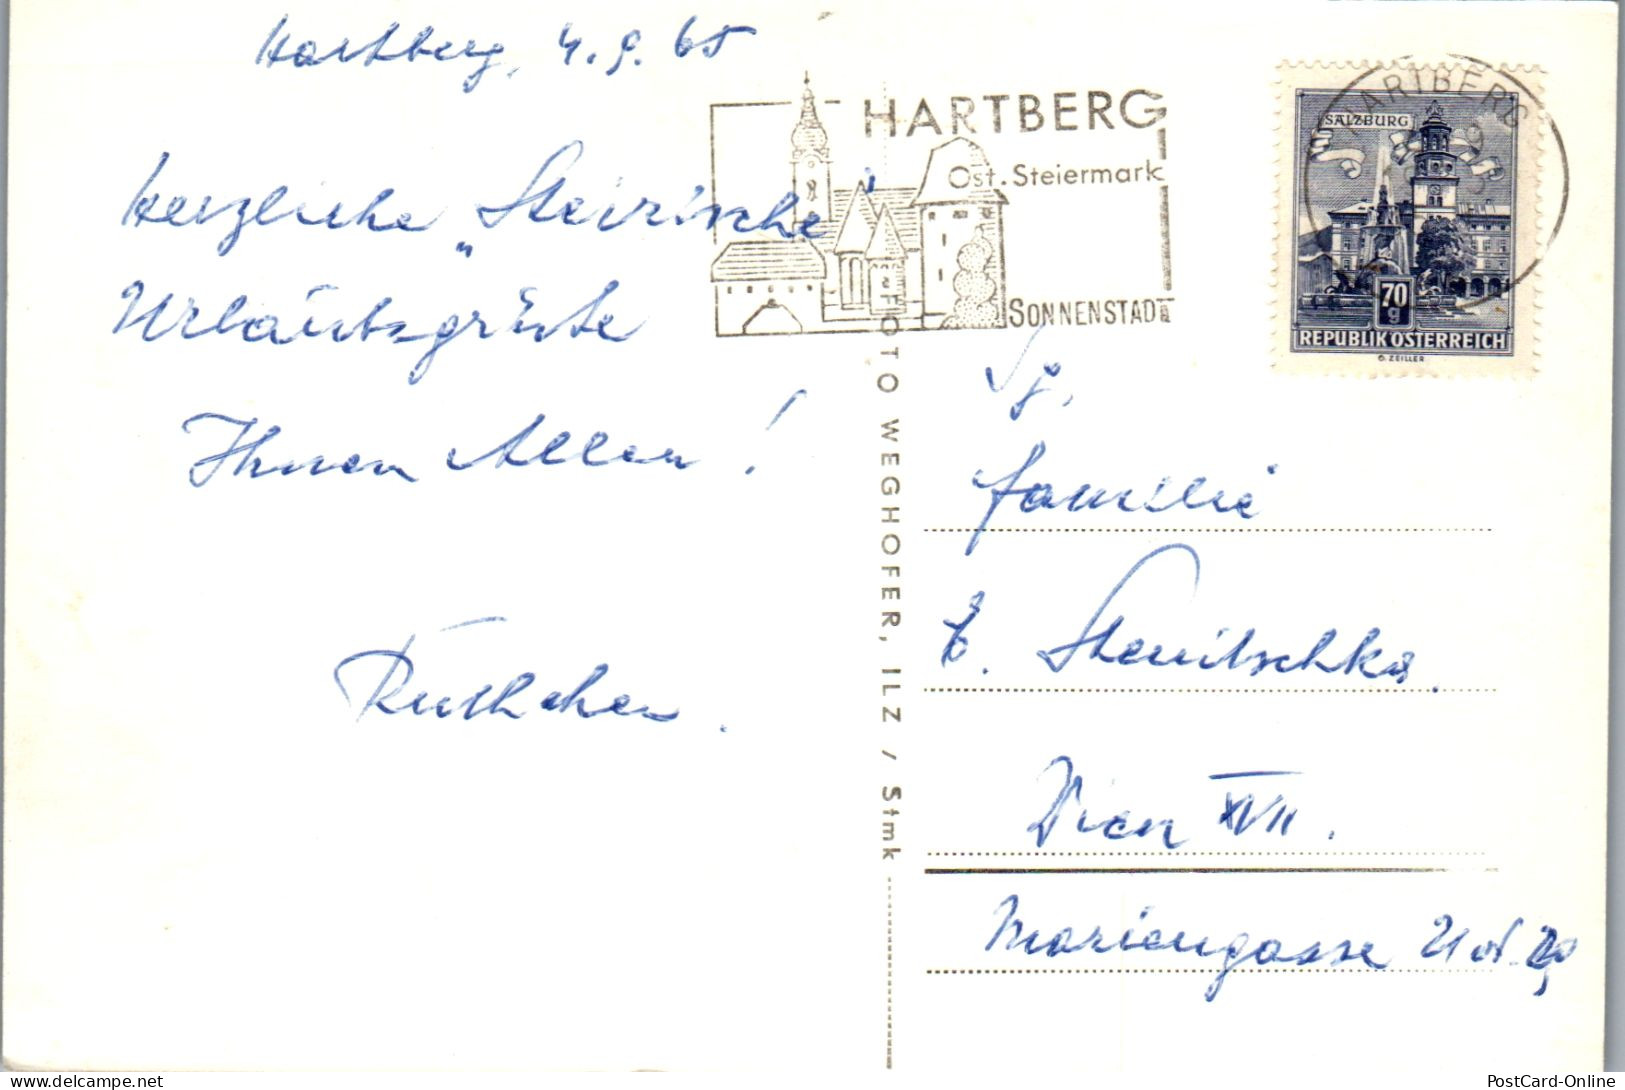 Hartberg, 4.9.65
Herzliche „Steirische"
Urlaubsgrüße
Ihnen Allen!
Ruthchen.
HARTBERG
Ost. Steiermark
SONNENSTADT
HARTBERG
SALZBURG
70
g
REPUBLIK ÖSTERREICH
O. ZEILLER
FOTO WEGHOFER, ILZ / Stmk
Familie
Stenitschka.
Wien XVII.
Mariengasse
PostCard-Online
delcampe.net